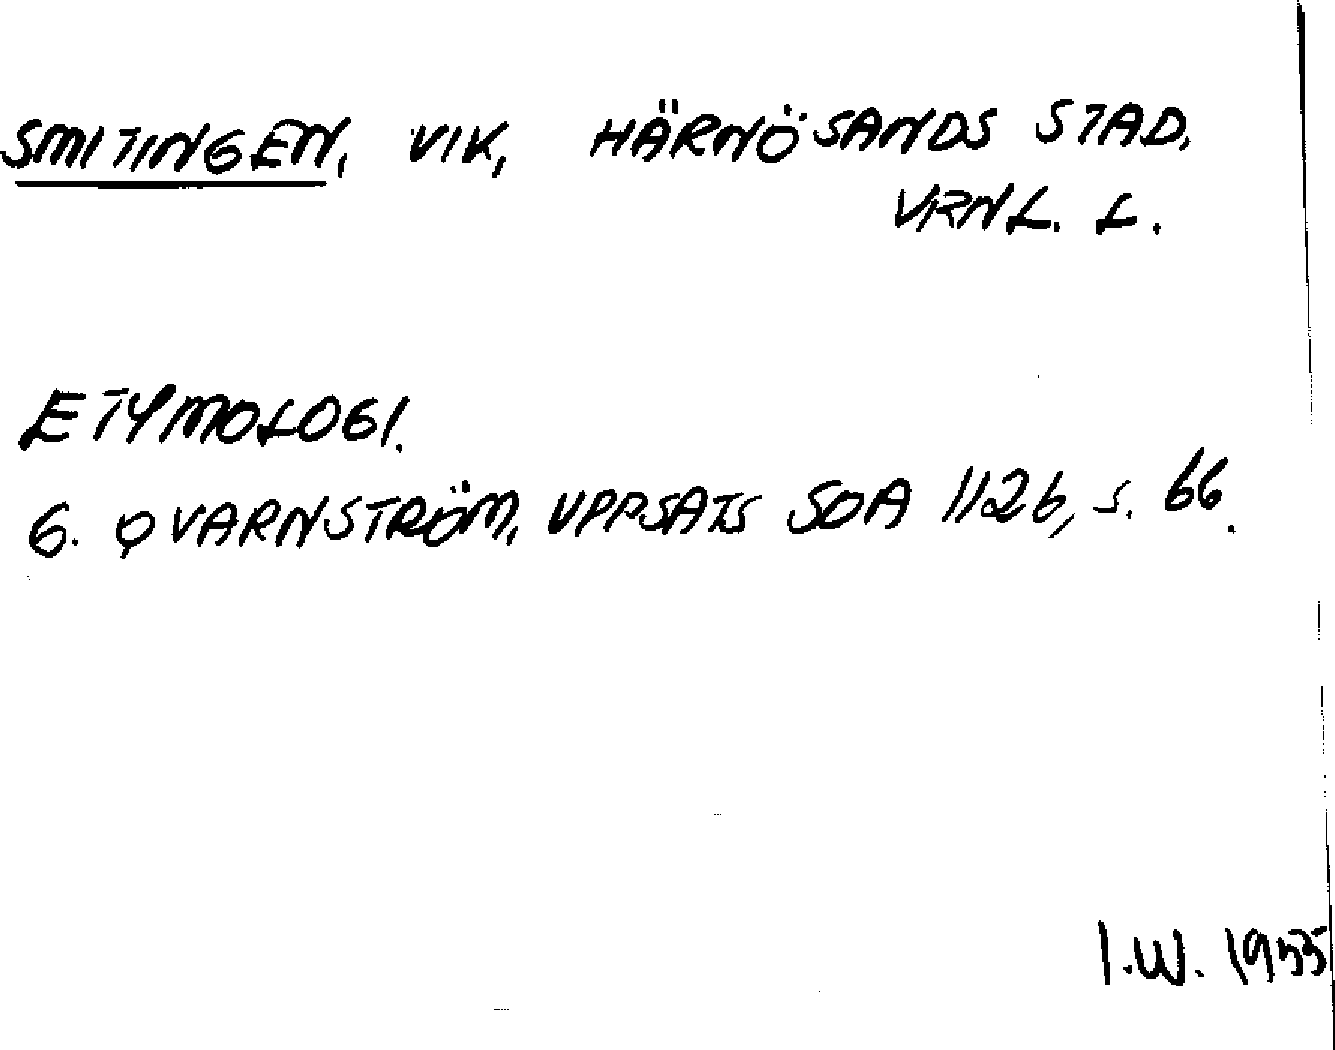 SMITINGEN, VIK, HÄRNÖSANDS STAD,
VRNL. L.
ETYMOLOGI.
G. QVARNSTRÖM, UPPSATS SOA 1126, s. 66.
I.W. 1955